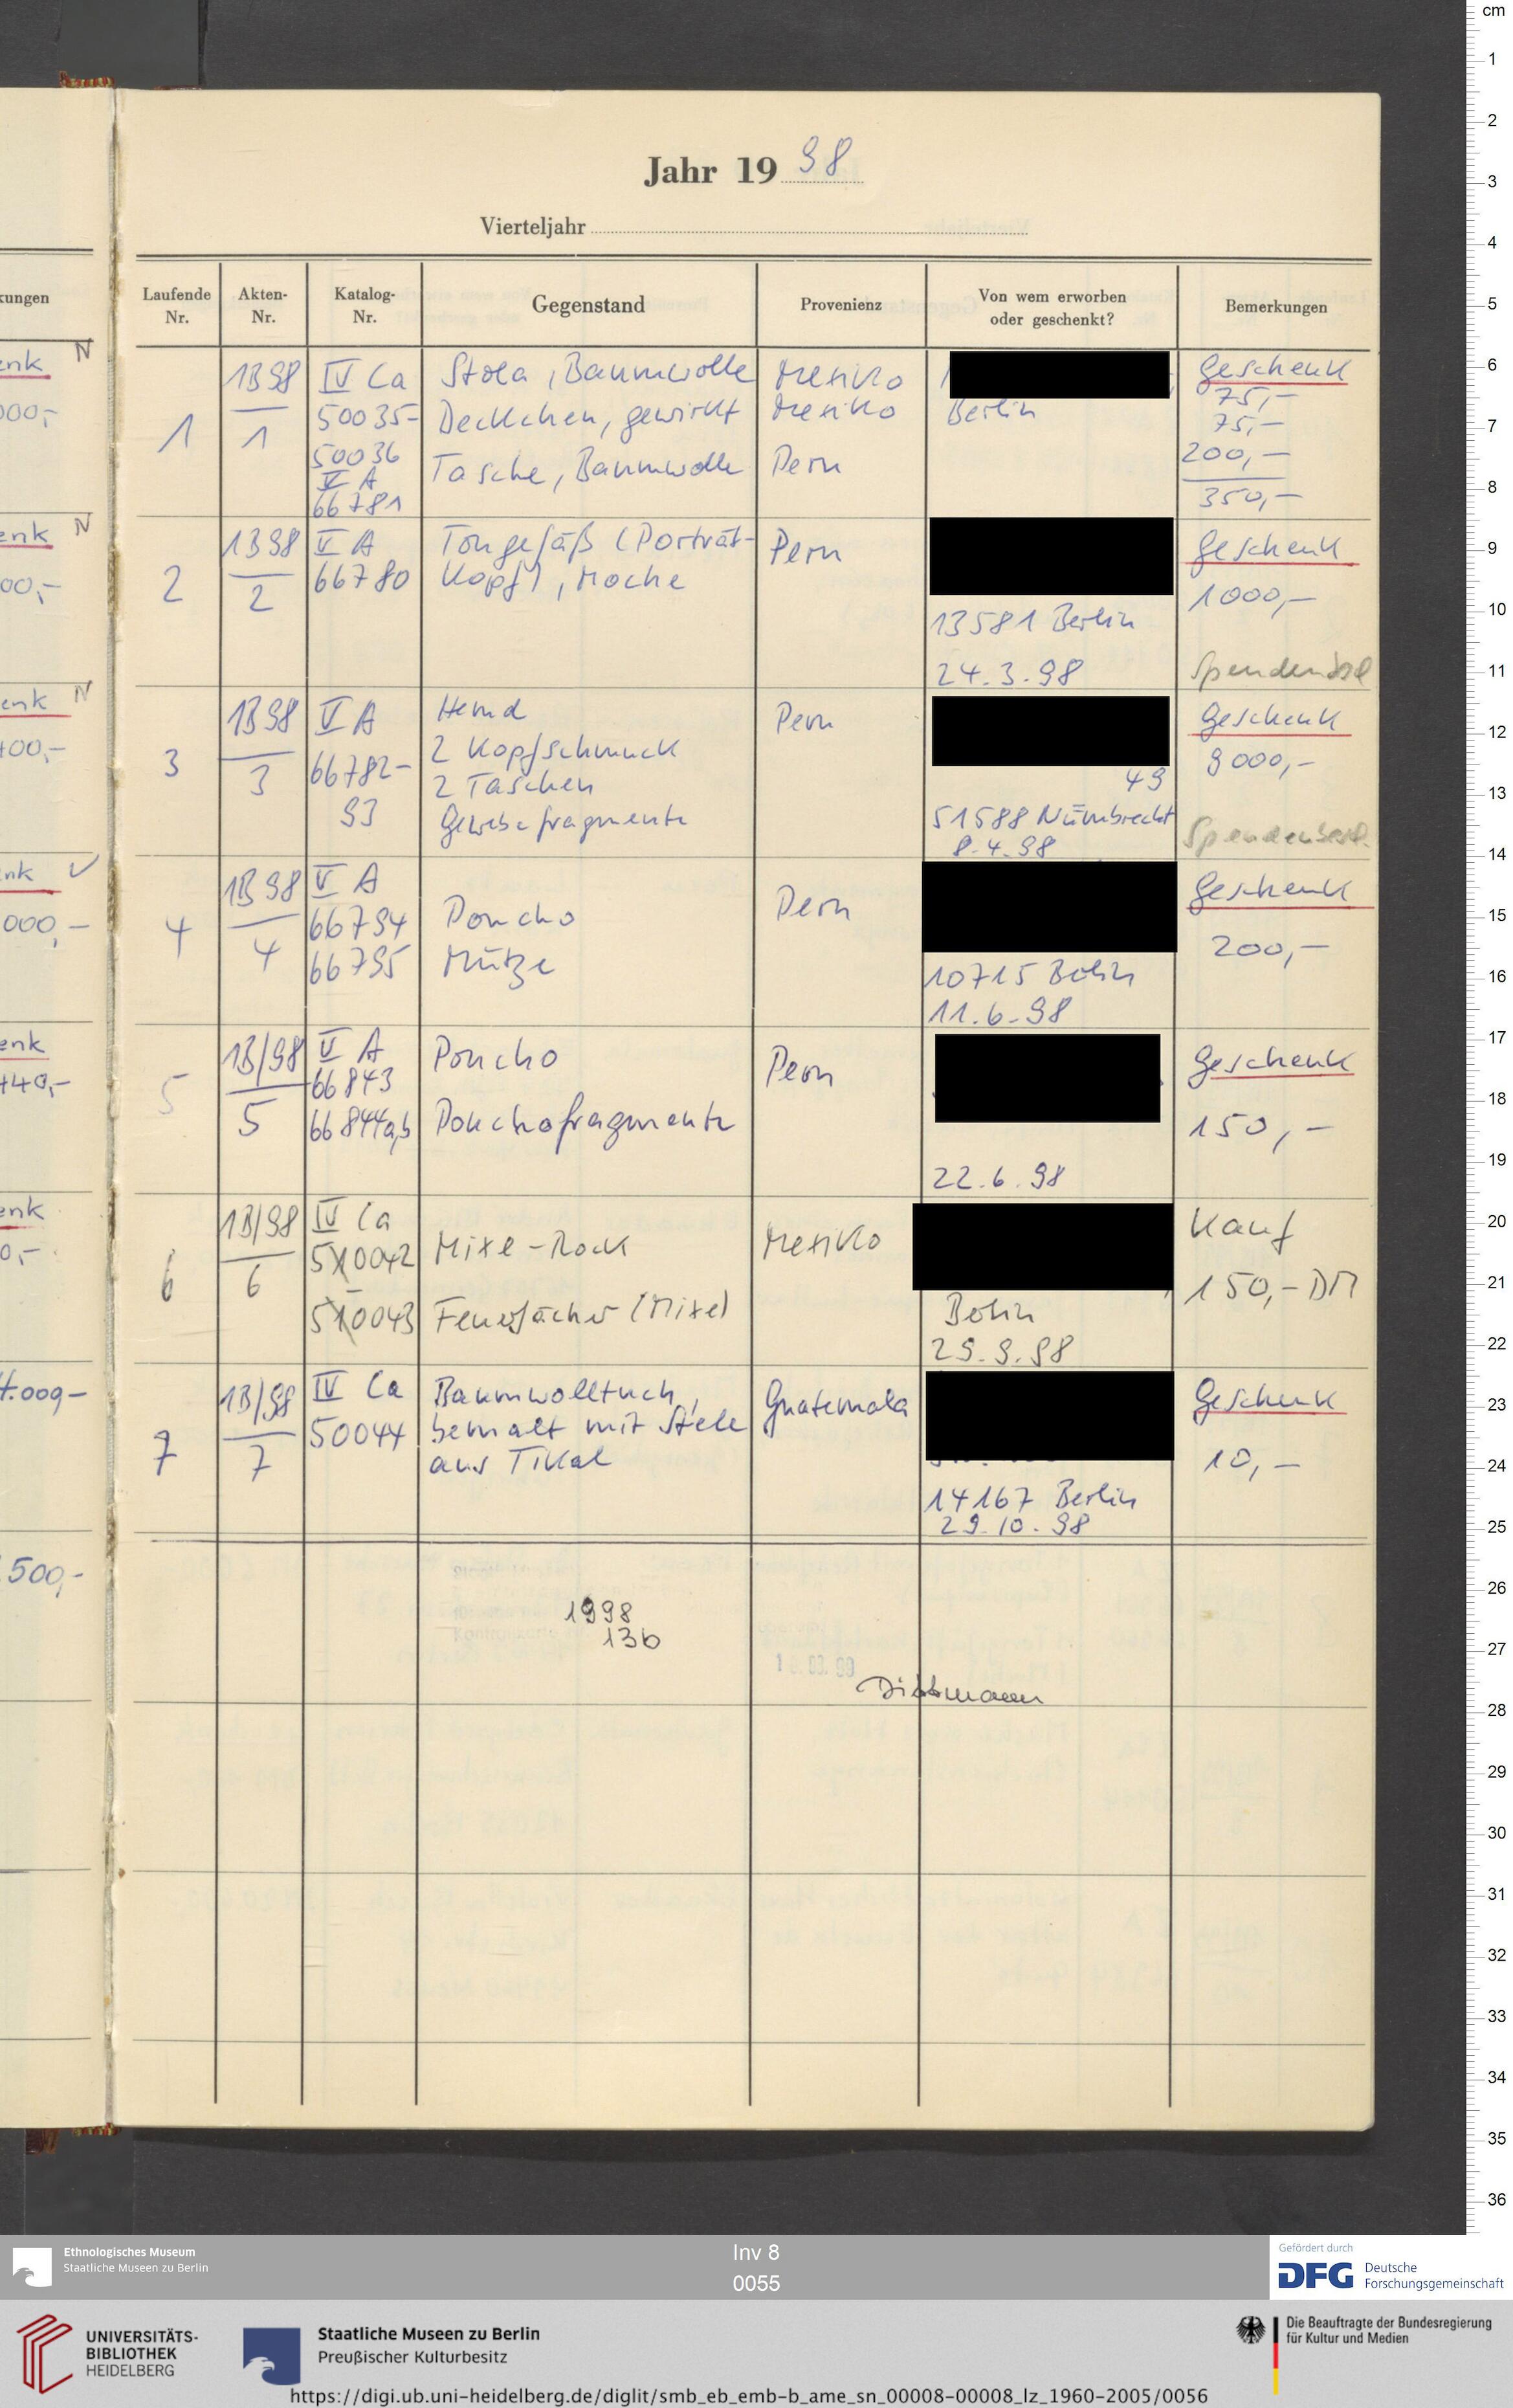 Jahr 19 98
Vierteljahr
Laufende Nr. Akten-Nr. Katalog-Nr. Gegenstand Provenienz Von wem erworben oder geschenkt? Bemerkungen
1 1B98/1 IV Ca Stola, Baumwolle Mexiko Geschenk
50035- Deckchen, gewirkt Mexiko Berlin 75,-
50036 75,-
V A Tasche, Baumwolle Peru 200,-
66781 350,-
2 1B98/2 V A Tongefäß (Porträt- Peru Geschenk
66780 kopf), Moche 1000,-
13581 Berlin
24.3.98
3 1B98/3 V A Hemd Peru Geschenk
66782- 2 Kopfschmuck 9000,-
93 2 Taschen 49
Gewebefragmente 51588 Nümbrecht
8.4.98 Spendenbest.
4 1B98/4 V A Peru Geschenk
66794 Poncho 200,-
66795 Mütze 10715 Berlin
11.6.98
5 1B/98/5 V A Poncho Peru Geschenk
66843
66844a,b Ponchofragmente 150,-
22.6.98
6 1B/98/6 IV Ca Mexiko Kauf
50042 Mixe-Rock 150,- DM
50043 Feuerfächer (Mixe) Berlin
29.9.98
7 1B/98/7 IV Ca Baumwolltuch, Guatemala Geschenk
50044 bemalt mit Stele
aus Tikal 10,-
14167 Berlin
29.10.98
1998
13b
Dittmann
cm
1
2
3
4
5
6
7
8
9
10
11
12
13
14
15
16
17
18
19
20
21
22
23
24
25
26
27
28
29
30
31
32
33
34
35
36
Ethnologisches Museum
Staatliche Museen zu Berlin
Inv 8
0055
Gefördert durch
DFG Deutsche
Forschungsgemeinschaft
UNIVERSITÄTS-
BIBLIOTHEK
HEIDELBERG
Staatliche Museen zu Berlin
Preußischer Kulturbesitz
Die Beauftragte der Bundesregierung
für Kultur und Medien
https://digi.ub.uni-heidelberg.de/diglit/smb_eb_emb-b_ame_sn_00008-00008_lz_1960-2005/0056